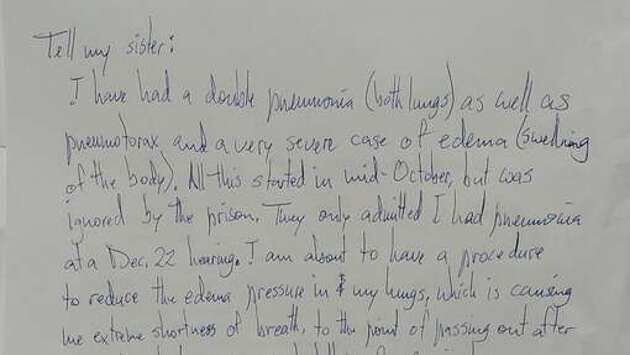 Tell my sister:
I have had a double pneumonia (both lungs) as well as
pneumotorax and a very severe case of edema (swelling
of the body). All this started in mid-October, but was
ignored by the prison. They only admitted I had pneumonia
at a Dec. 22 hearing. I am about to have a procedure
to reduce the edema pressure in my lungs, which is causing
me extreme shortness of breath, to the point of passing out after